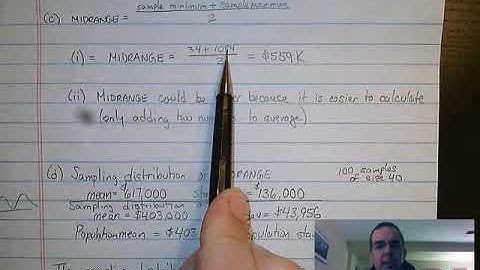 (c) MIDRANGE = sample minimum + sample maximum
2
(i) = MIDRANGE = 34 + 1084 = $559K
2
(ii) MIDRANGE could be because it is easier to calculate
(only adding two to average)
(d) Sampling distribution MIDRANGE
100 samples
of size 40
mean = $617,000 $136,000
Sampling distribution
mean = $403,000 dev = $43,956
Population mean = $403 population